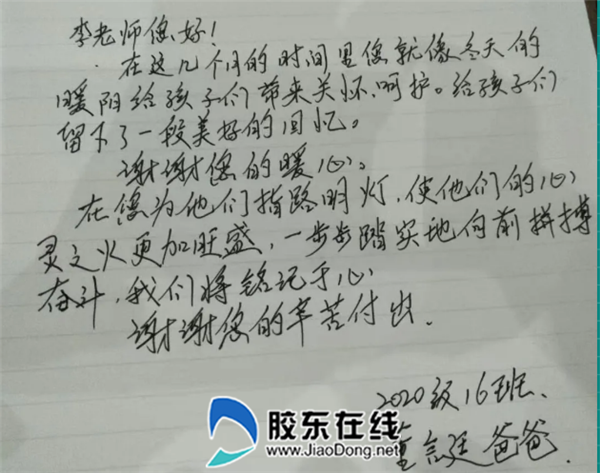 李老师您好!
在这几个月的时间里您就像冬天的
暖阳给孩子们带来关怀、呵护。给孩子们
留下了一段美好的回忆。
谢谢您的暖心。
在您为他们指路明灯,使他们的心
灵之火更加旺盛,一步步踏实地向前拼搏
奋斗,我们将铭记于心
谢谢您的辛苦付出.
2020级16班、
董 廷爸爸.
胶东在线
www.JiaoDong.net